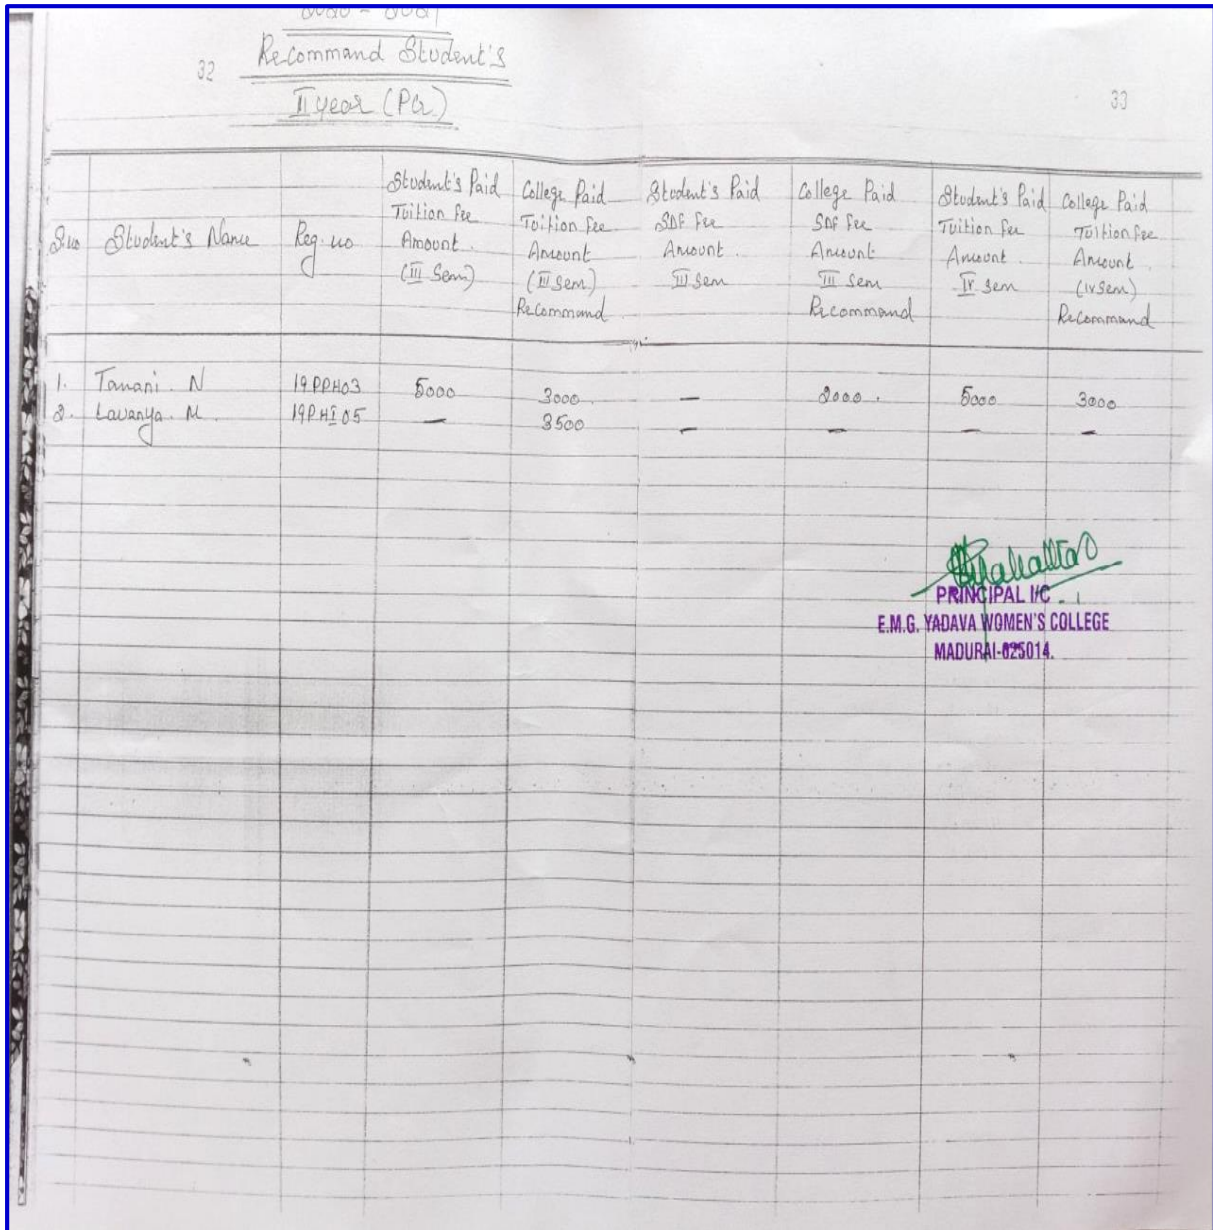 2020 - 2021
32
Recommand Student's
II year (PG)
33
S.no
Student's Name
Reg. no
Student's Paid
Tuition Fee
Amount.
(III Sem)
College Paid
Tuition Fee
Amount
(III Sem)
Recommand
Student's Paid
SDF Fee
Amount.
III Sem
College Paid
SDF Fee
Amount
III Sem
Recommand
Student's Paid
Tuition Fee
Amount.
IV Sem
College Paid
Tuition Fee
Amount.
(IV Sem)
Recommand
1. N 19PPH03 5000 3000. — 2000. 5000 3000
2. Lavanya. M. — 3500 — — — —
PRINCIPAL I/C
E.M.G. YADAVA WOMEN'S COLLEGE
MADURAI-625014.